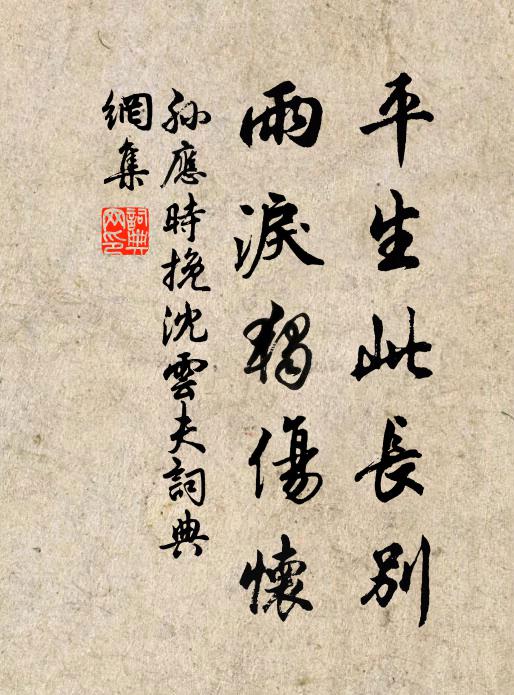 平生此長別
雨淚獨傷懷
孫應時挽沈雲夫詞典
網集
詞典網印